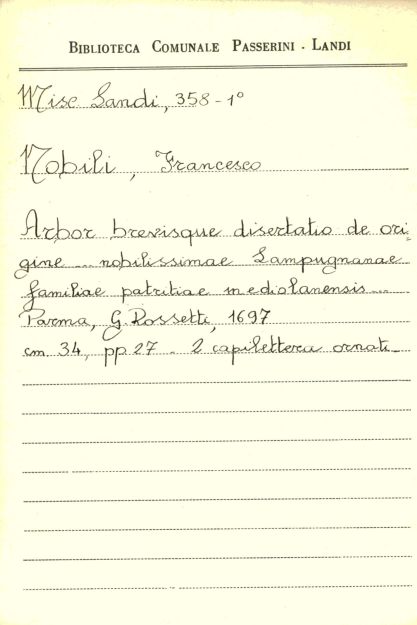 BIBLIOTECA COMUNALE PASSERINI - LANDI
Misc Landi, 358-1°
Nobili, Francesco
Arbor brevisque disertatio de ori-
gine ... nobilissimae Lampugnanae
familiae patritiae mediolanensis ...
Parma, G. Rossetti, 1697
cm 34, pp 27 - 2 capilettera ornati -